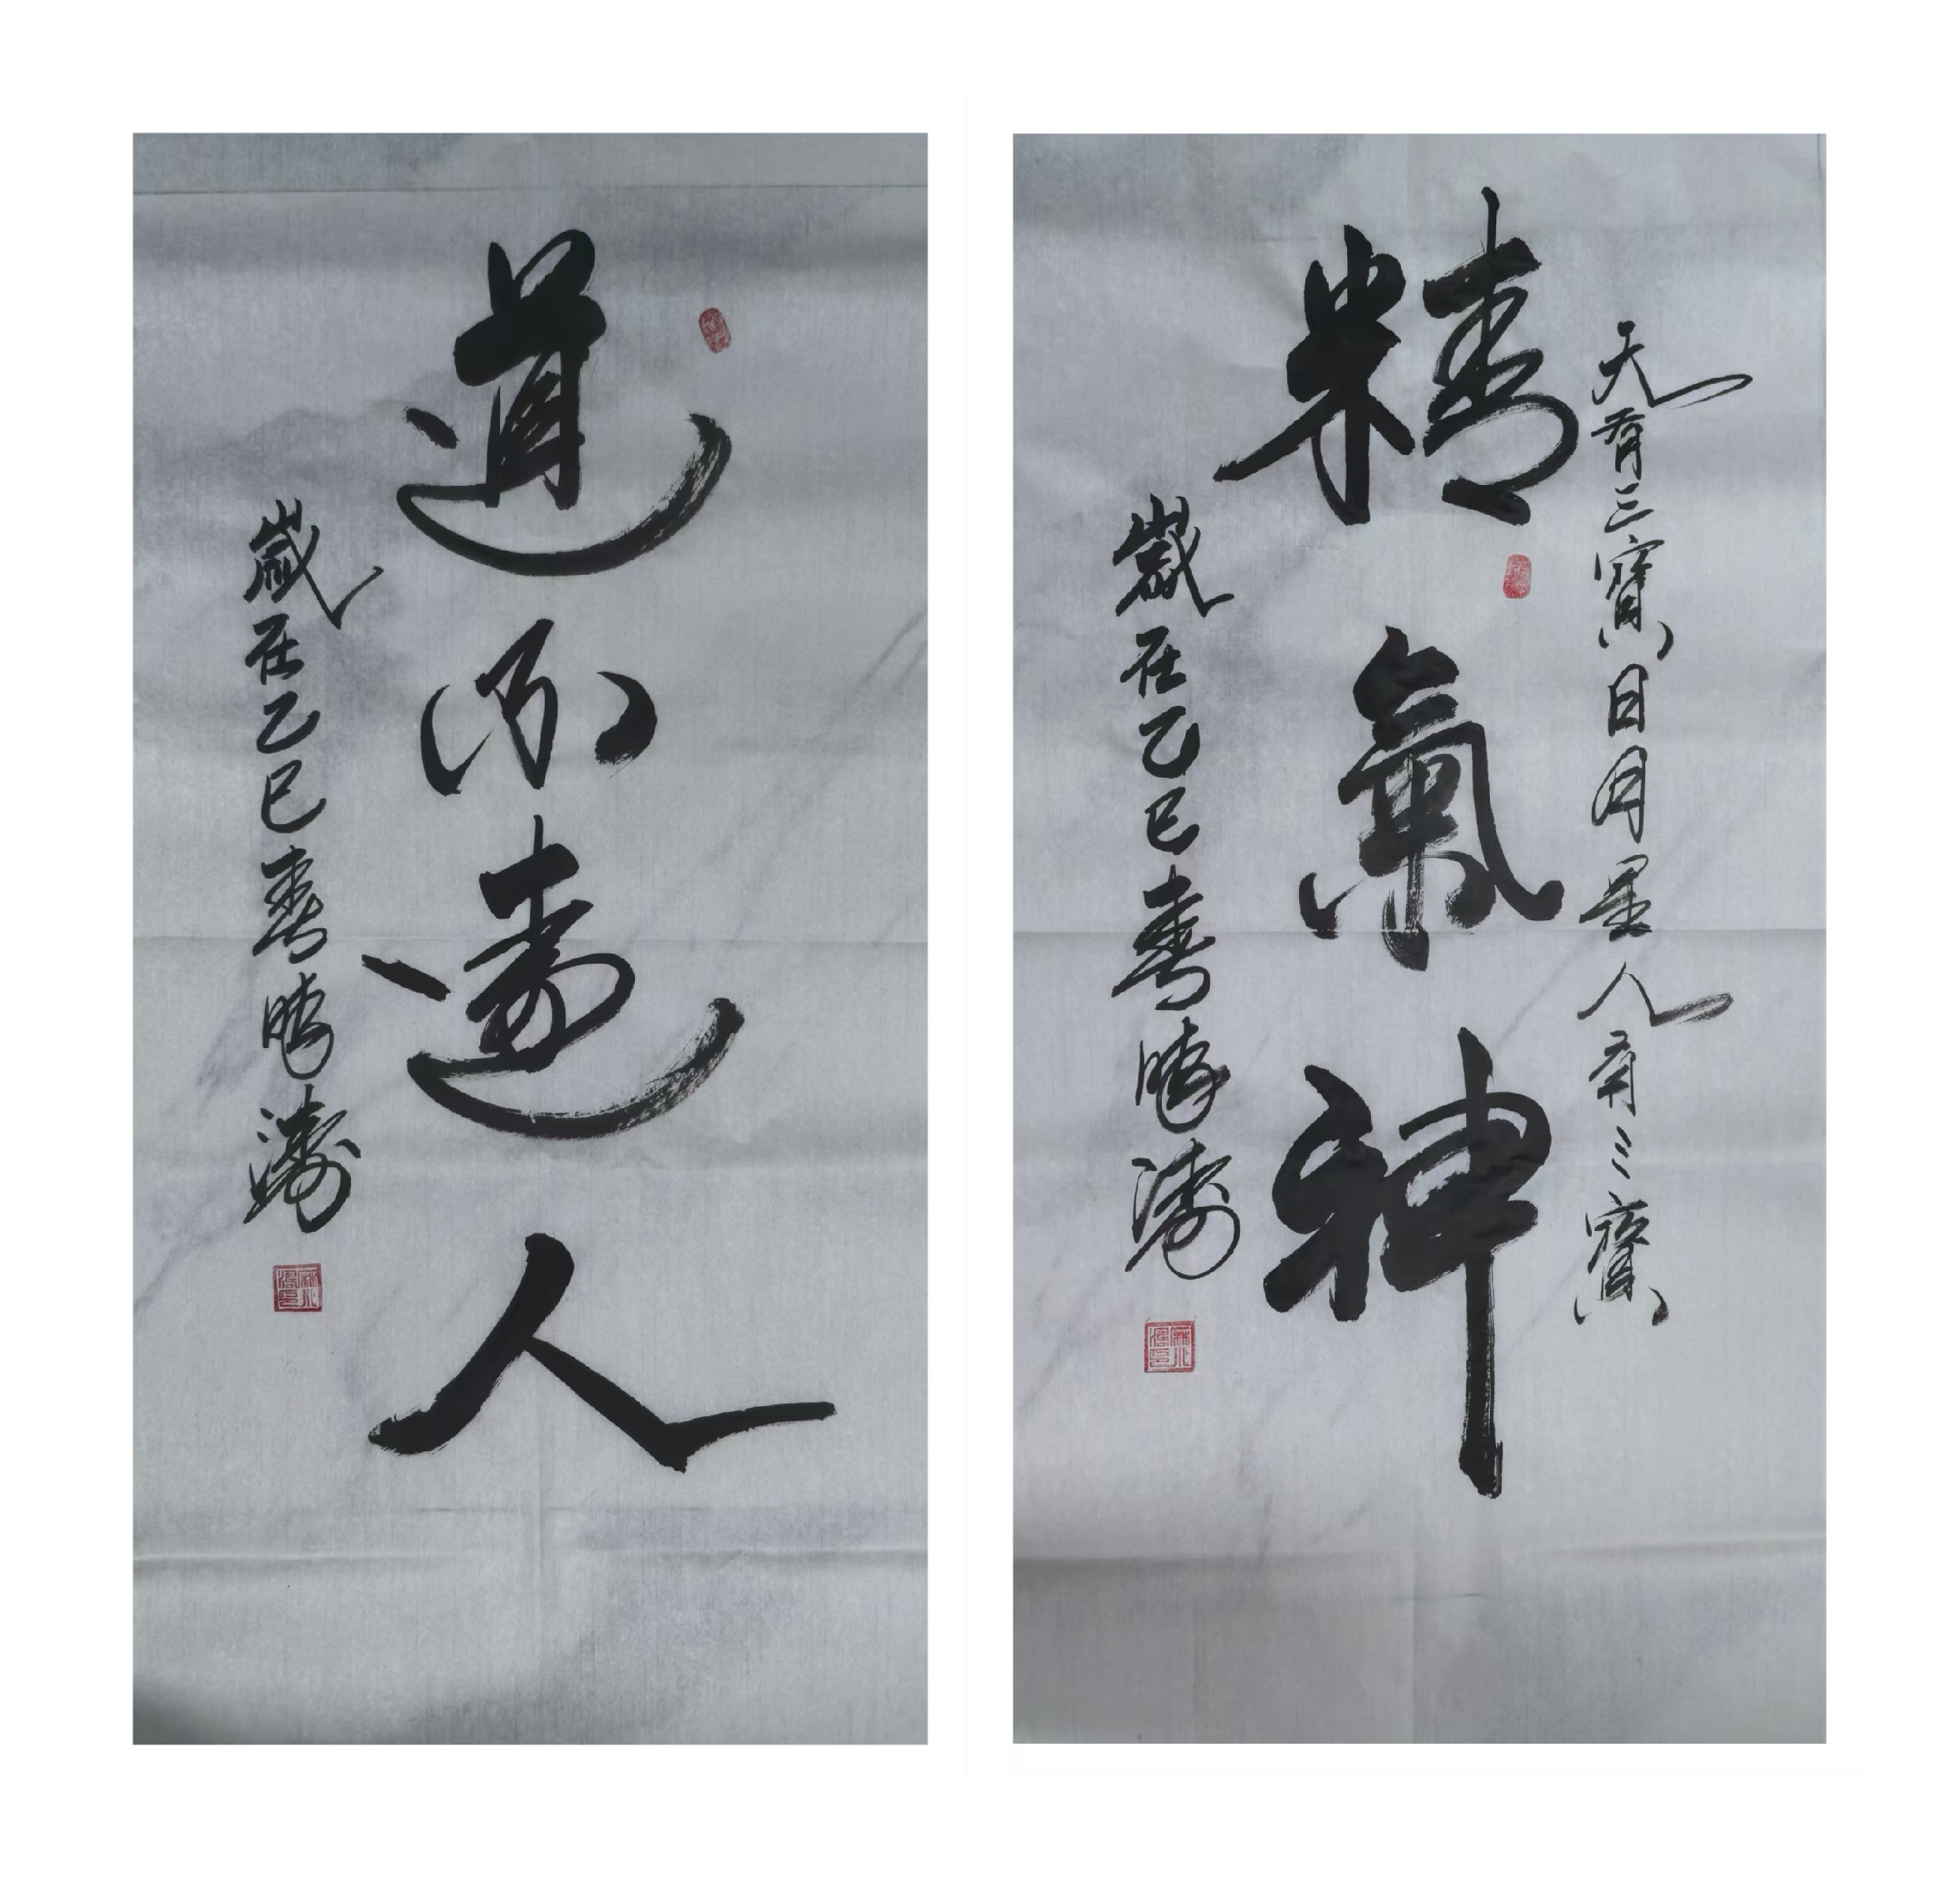 天有三寶日月星人有三寶
精氣神
歲在乙巳春曉濤
道不遠人
歲在乙巳春曉濤